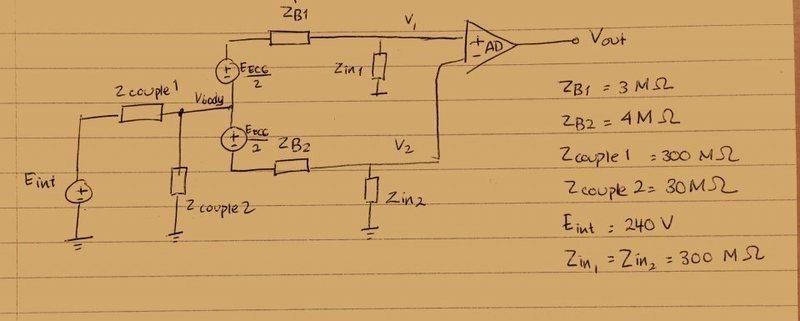 Z_B1
V₁
+
-
AD
Vout
Zin₁
+
-
E_ECG/2
Z couple 1
Vbody
+
-
E_ECG/2
Z_B2
V₂
Eint
+
-
Z couple 2
Zin₂
Z_B1 = 3 MΩ
Z_B2 = 4 MΩ
Z couple 1 = 300 MΩ
Z couple 2 = 30 MΩ
Eint = 240 V
Zin₁ = Zin₂ = 300 MΩ